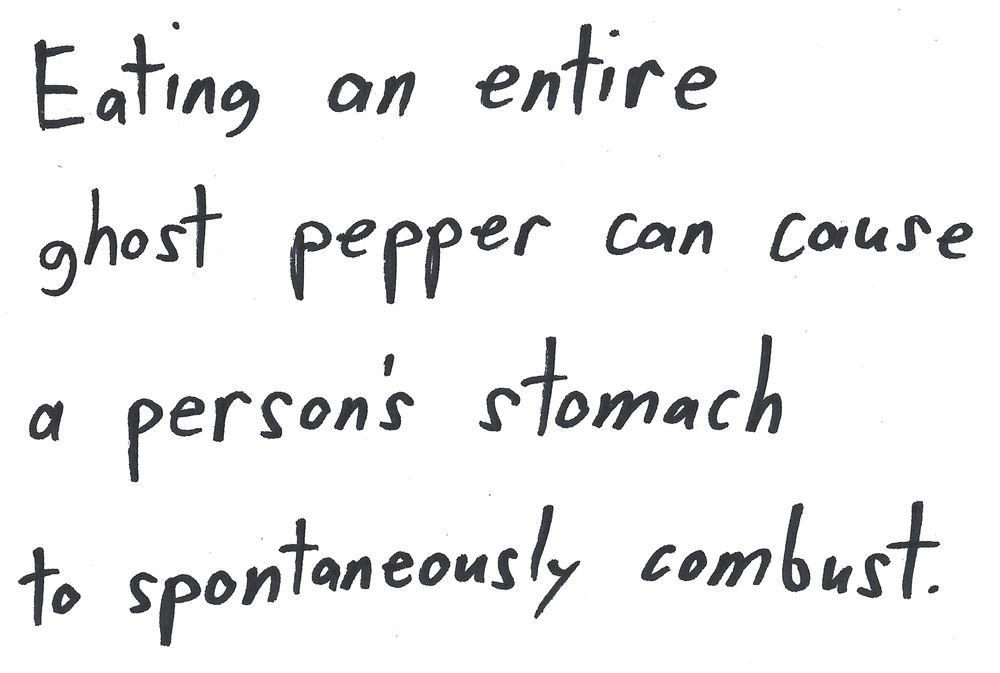 Eating an entire
ghost pepper can cause
a person's stomach
to spontaneously combust.